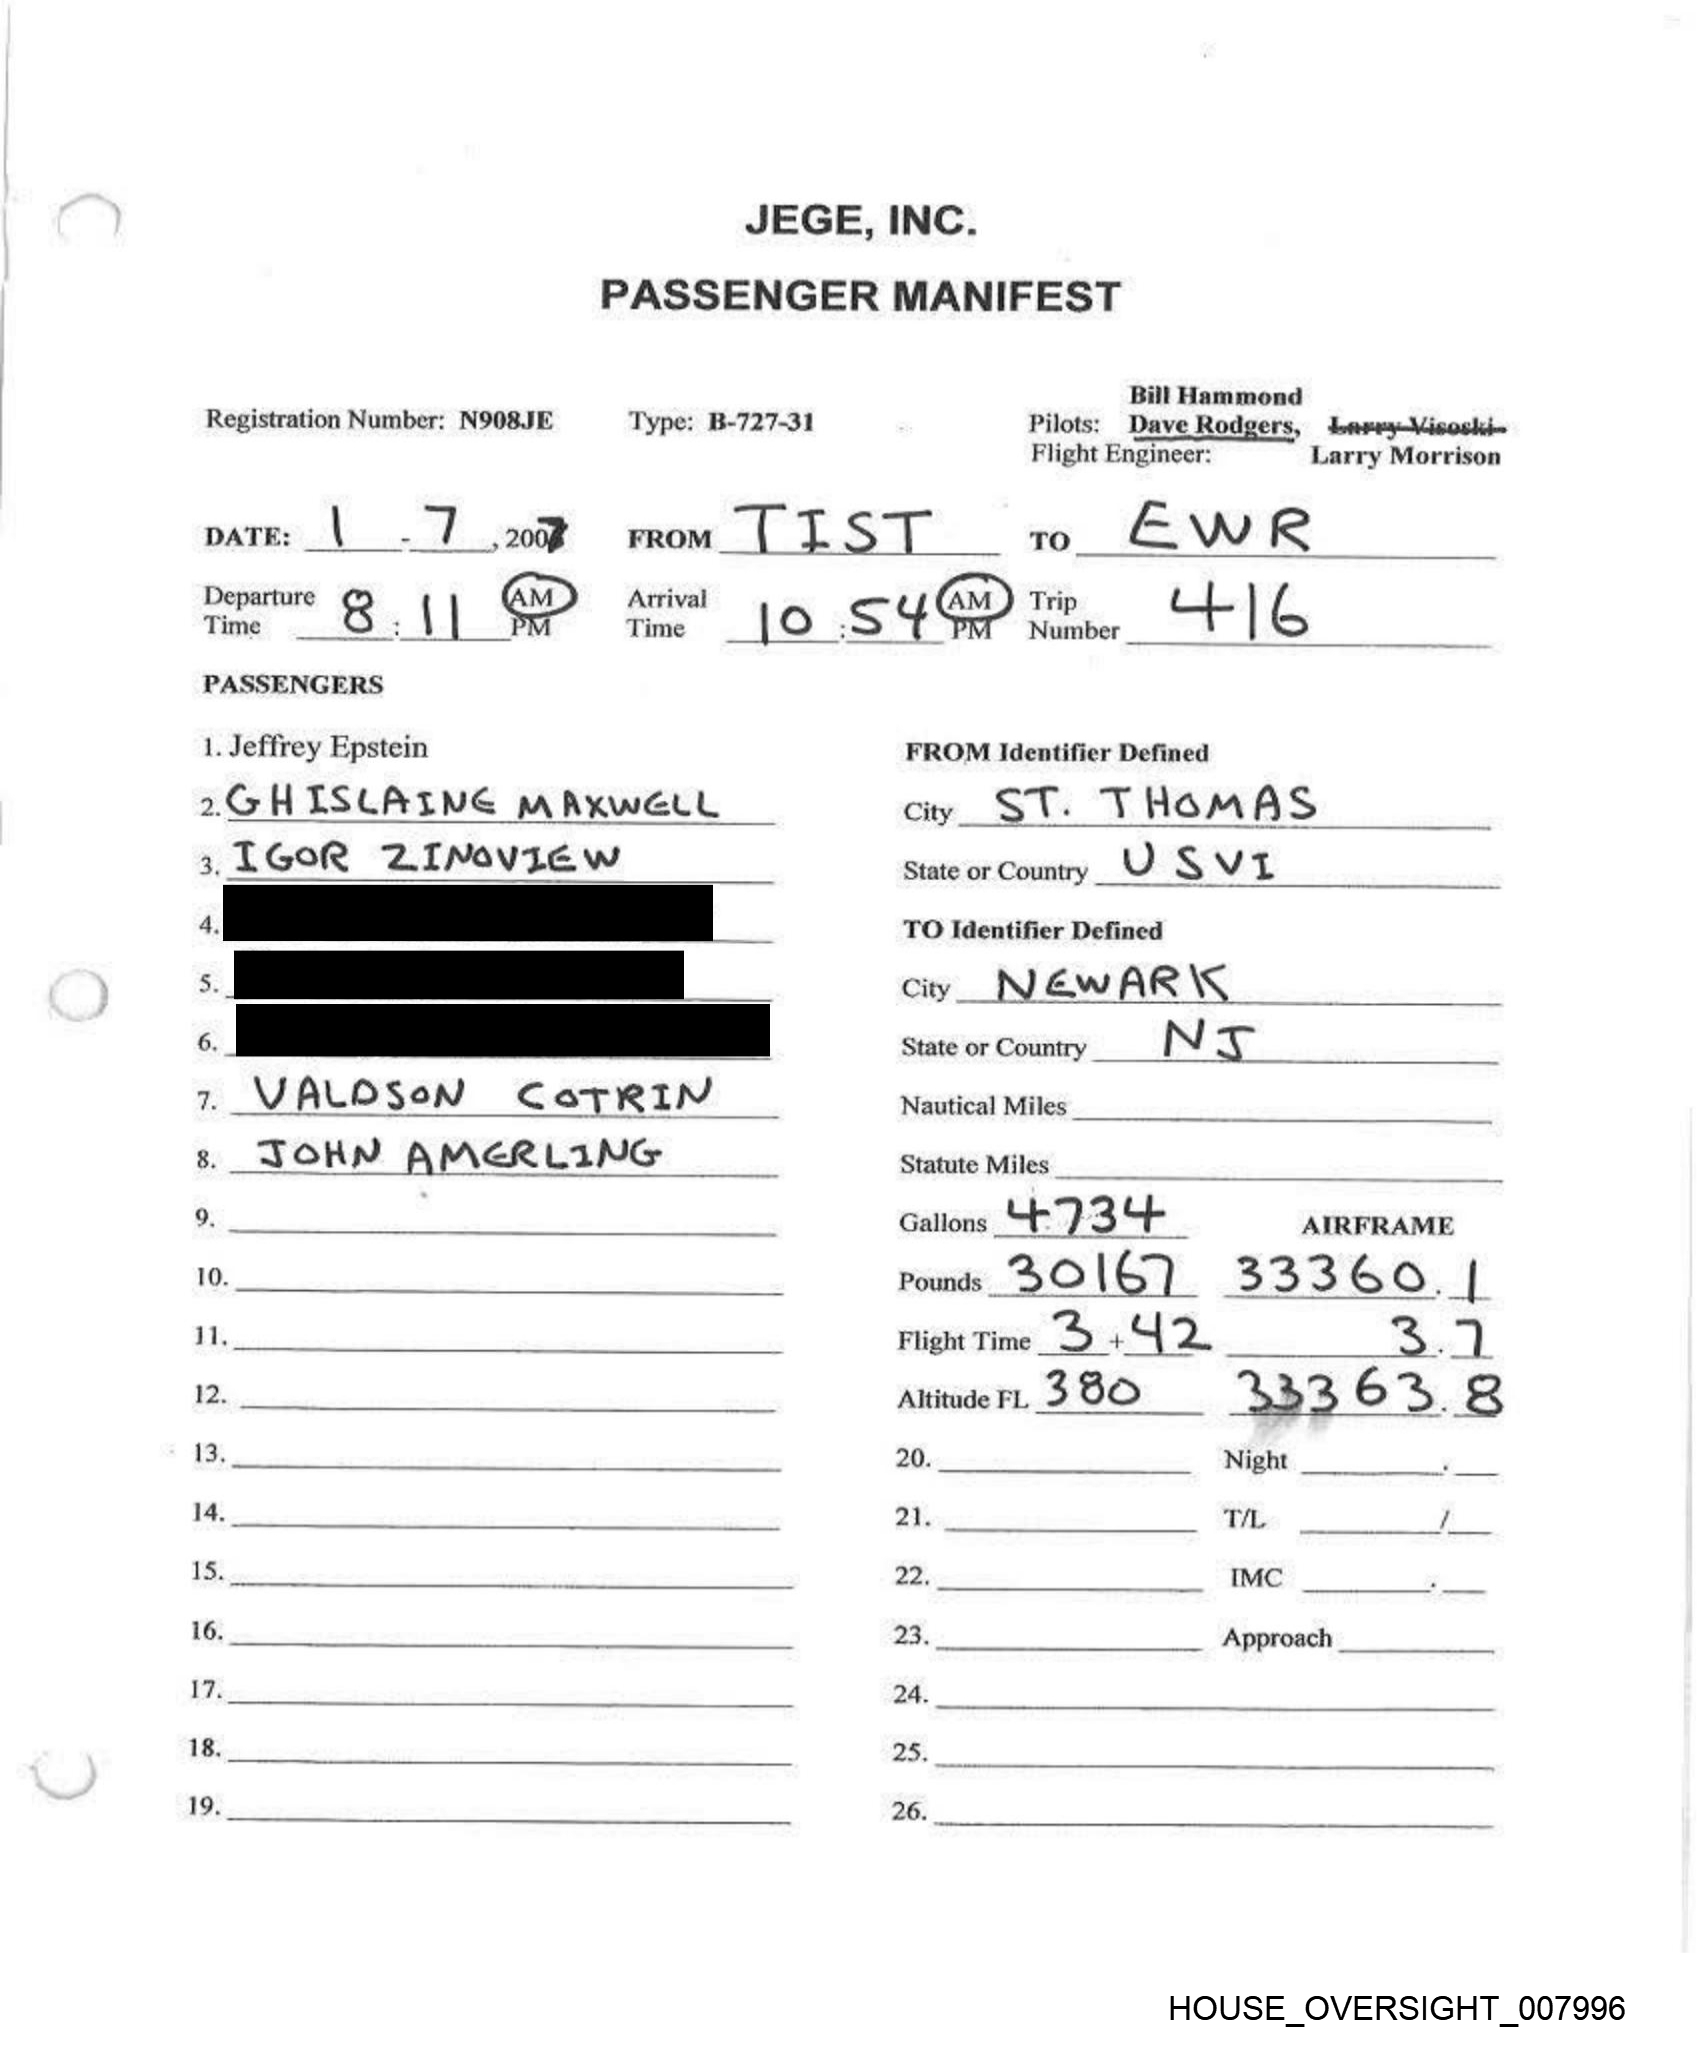 JEGE, INC.
PASSENGER MANIFEST
Bill Hammond
Registration Number: N908JE Type: B-727-31 Pilots: Dave Rodgers, Larry Visoski
Flight Engineer: Larry Morrison
DATE: 1 - 7, 2007 FROM TIST TO EWR
Departure Time 8:11 AM PM Arrival Time 10:54 AM PM Trip Number 416
PASSENGERS
1. Jeffrey Epstein
2. GHISLAINE MAXWELL
3. IGOR ZINOVIEW
4.
5.
6.
7. VALDSON COTRIN
8. JOHN AMERLING
9.
10.
11.
12.
13.
14.
15.
16.
17.
18.
19.
FROM Identifier Defined
City ST. THOMAS
State or Country USVI
TO Identifier Defined
City NEWARK
State or Country NJ
Nautical Miles
Statute Miles
Gallons 4734 AIRFRAME
Pounds 30167 33360.1
Flight Time 3 + 42 3.7
Altitude FL 380 33363.8
20. Night .
21. T/L /
22. IMC .
23. Approach
24.
25.
26.
HOUSE_OVERSIGHT_007996